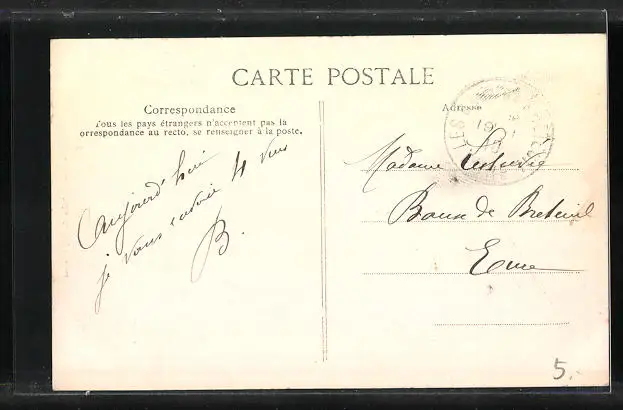 CARTE POSTALE
Correspondance
Tous les pays étrangers n'acceptent pas la
orrespondance au recto, se renseigner à la poste.
Adresse
Aujourd'hui
je vous envoie 4 vues
B.
Madame
Baux de Breteuil
Eure
5.